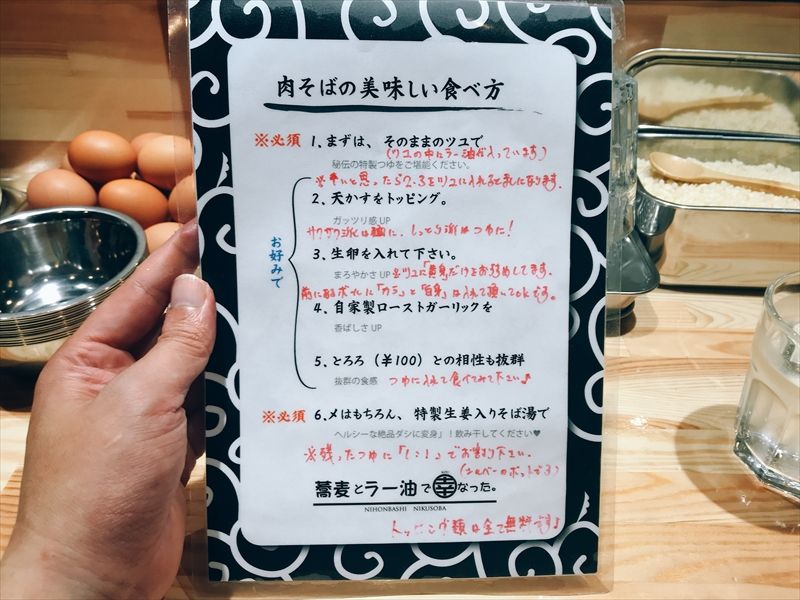 肉そばの美味しい食べ方
※必須 1、まずは、そのままのツユで
(ツユの中にラー油が入っています)
秘伝の特製つゆをご堪能ください。
※辛いと思ったら2.3をツユに入れると
2、天かすをトッピング。
ガッツリ感 UP
サクサク派は麺に、しっとり派はつゆに!
お好みで
3、生卵を入れて下さい。
まろやかさ UP ※ツユに「黄身」だけをお勧めしてます。
前にあるボールに「カラ」と「白身」は入れて頂いてOKです。
4、自家製ローストガーリックを
香ばしさ UP
5、とろろ(¥100)との相性も抜群
抜群の食感 つゆに入れて食べてみて下さい♪
※必須 6、〆はもちろん、特製生姜入りそば湯で
ヘルシーな絶品ダシに変身」!飲み干してください♥
※残ったつゆに「1:1」でお割り下さい。
(シルバーのポットです)
蕎麦とラー油で幸なった。
NIHONBASHI NIKUSOBA
トッピング類は全て無料です♪